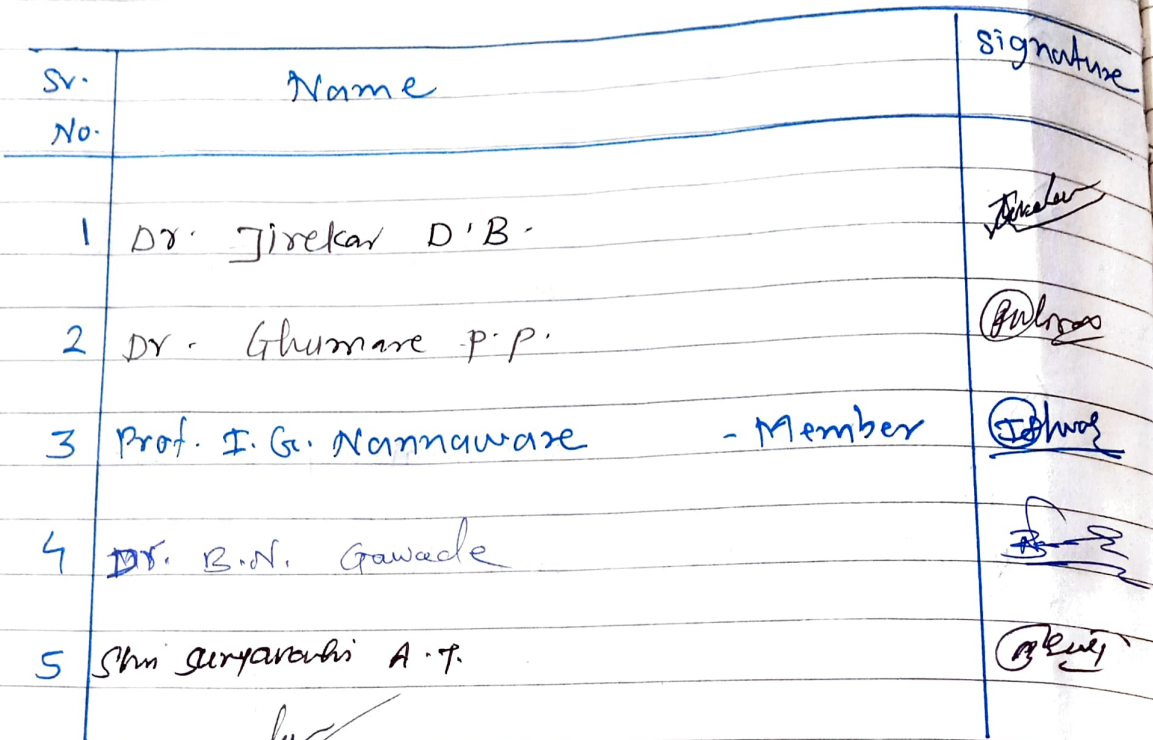 Sr. No. Name signature
1 Dr. Jirekar D.B.
2 Dr. Ghumare P.P.
3 Prof. I. G. Nannaware - Member
4 Dr. B.N. Gawade
5 Shri Suryavanshi A.T.